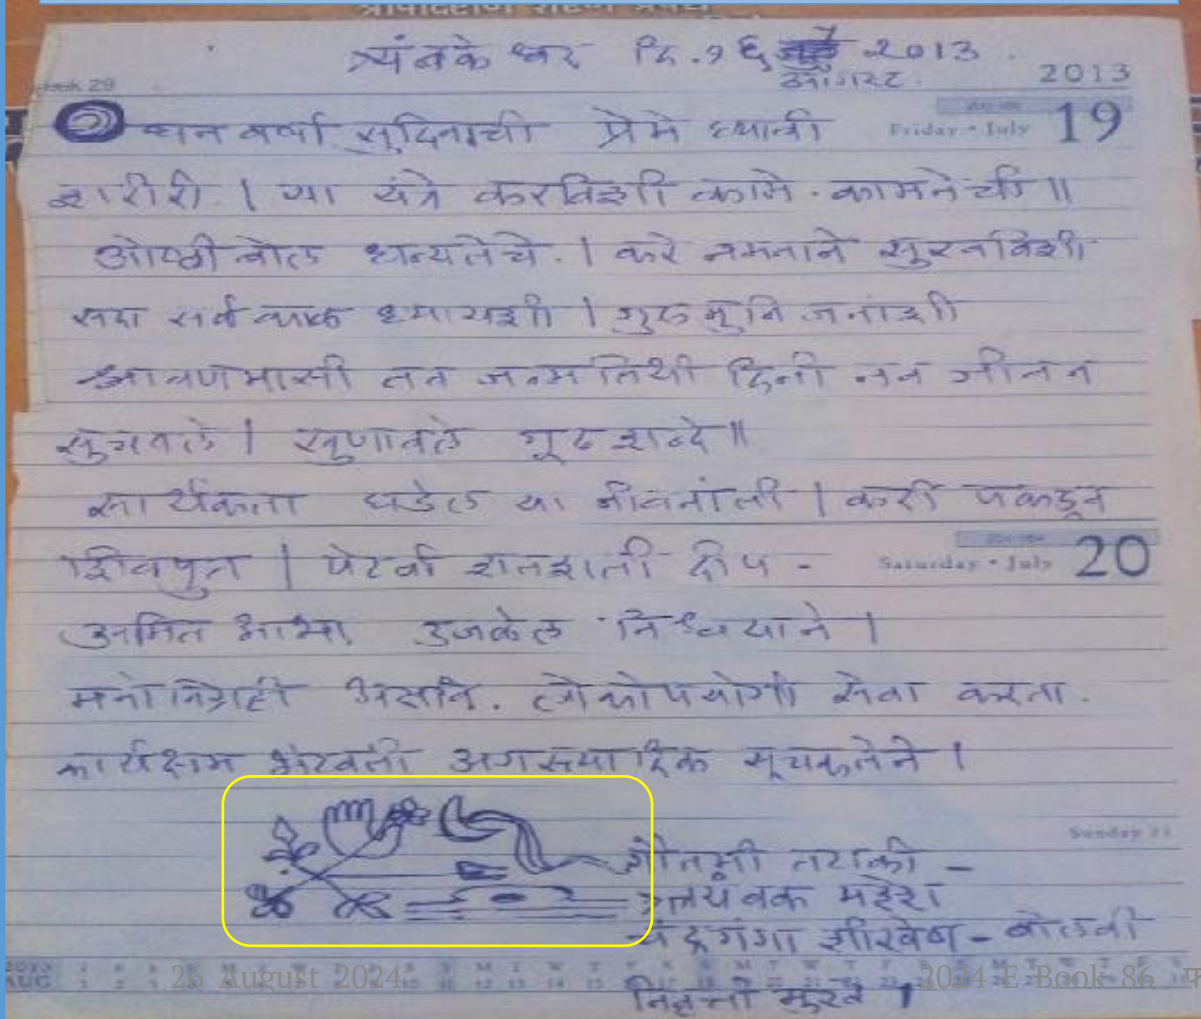 त्र्यंबकेश्वर दि. १६ 2013
ऑगस्ट 2013
Friday • July 19
घन वर्षा सुदिनाची प्रेमे ध्यानी
शरीरी । या यंत्रे करविशी कामे. कामनेची ॥
ओष्ठी बोल धन्यतेचे. । करे नमनाने सुरनविशी
सदा सर्व काळ ध्यायशी । गुरु मुनि जनांशी
श्रावणमासी तव जन्म तिथी दिनी नव जीवन
सुचवले । सुणावले गूढ शब्दे ॥
सार्थकता घडेल या जीवनांती । करी पकडून
शिवपुत्र । पेटवी शतशाती दीप -
Saturday • July 20
अमित आभा उजळेल निश्चयाने ।
मनोनिग्रही असावे. लोकोपयोगी सेवा करता.
कार्यक्षम भेटवती अगस्त्यादिक सूचकतेने ।
Sunday 21
गौतमी तटाकी -
त्र्यंबक महेश
चंद्रगंगा शीरवेष - बोलवी
2013 AUG
25 August 2024
2024 E Book 86